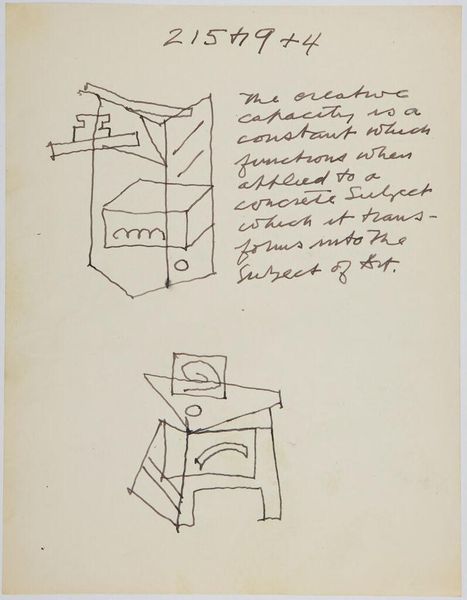 215+19+4
The creative
capacity is a
constant which
functions when
applied to a
concrete Subject
which it trans-
forms into the
Subject of Art.